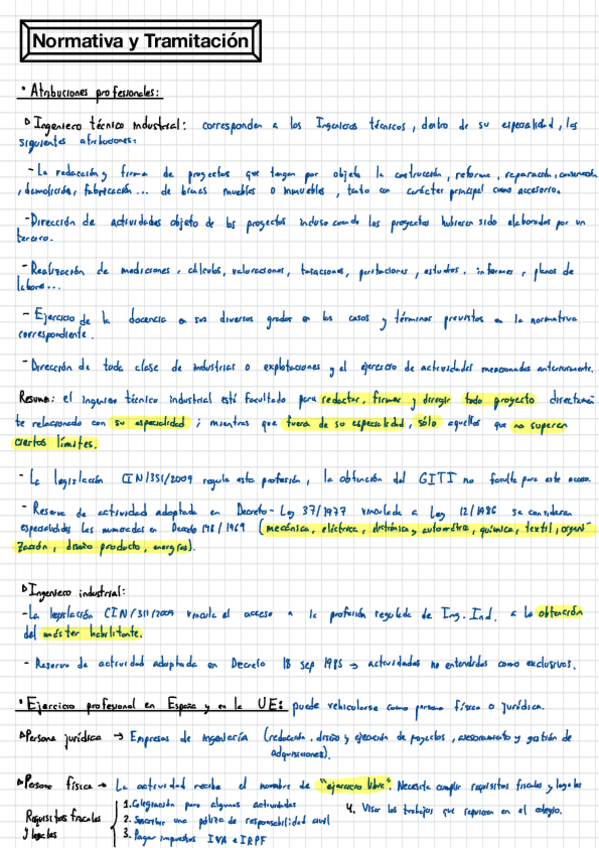 Normativa y Tramitación
• Atribuciones profesionales:
▷ Ingeniero técnico industrial: corresponden a los Ingenieros técnicos, dentro de su especialidad, las
siguientes atribuciones:
- La redacción y firma de proyectos que tengan por objeto la construcción, reforma, reparación, conservación
, demolición, fabricación... de bienes muebles o inmuebles, tanto con carácter principal como accesorio.
- Dirección de actividades objeto de los proyectos incluso cuando los proyectos hubieran sido elaborados por un
tercero.
- Realización de mediciones, cálculos, valoraciones, tasaciones, peritaciones, estudios, informes, planos de
labores...
- Ejercicio de la docencia en sus diversos grados en los casos y términos previstos en la normativa
correspondiente.
- Dirección de toda clase de industrias o explotaciones y el ejercicio de actividades mencionadas anteriormente.
Resumen: el ingeniero técnico industrial está facultado para redactar, firmar y dirigir todo proyecto directamen
te relacionado con su especialidad; mientras que fuera de su especialidad, sólo aquellos que no superen
ciertos límites.
- La legislación CIN/351/2009 regula esta profesión, la obtención del GITI no faculta para este acceso.
- Reserva de actividad adoptada en Decreto-Ley 37/1977 vinculada a Ley 12/1986 se consideran
especialidades las numeradas en Decreto 148/1969 (mecánica, eléctrica, electrónica y automática, química, textil, organi-
zación, diseño producto, energías).
▷ Ingeniero industrial:
- La legislación CIN/311/2009 vincula el acceso a la profesión regulada de Ing. Ind. a la obtención
del máster habilitante.
- Reserva de actividad adoptada en Decreto 18 sep 1935 → actividades no entendidas como exclusivas.
• Ejercicio profesional en España y en la UE: puede vehicularse como persona física o jurídica.
▷ Persona jurídica → Empresas de ingeniería (redacción, diseño y ejecución de proyectos, asesoramiento y gestión de
adquisiciones).
▷ Persona física → La actividad recibe el nombre de "ejercicio libre". Necesita cumplir requisitos fiscales y legales
Requisitos fiscales y legales
1. Colegiación para algunas actividades
2. Suscribir una póliza de responsabilidad civil
3. Pagar impuestos IVA e IRPF
4. Visar los trabajos que requieran en el colegio.